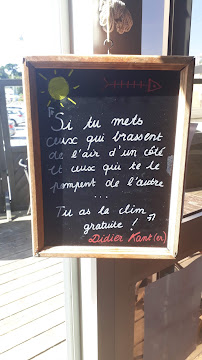 "Si tu mets
ceux qui brassent
de l'air d'un côté
et ceux qui te le
pompent de l'autre
...
Tu as la clim
gratuite ! "
Didier Kant(er)